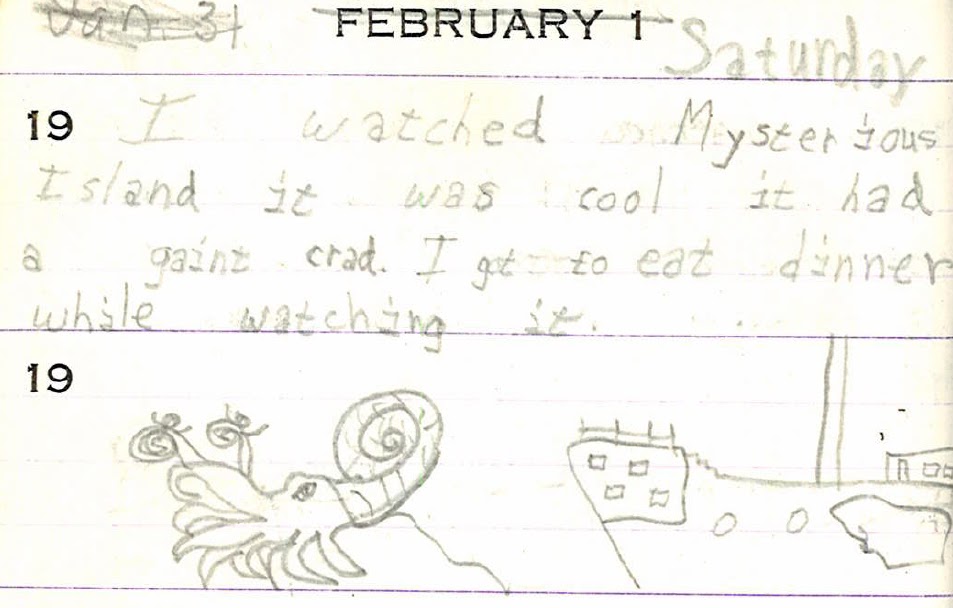 Jan. 31 FEBRUARY 1 Saturday
19 I watched Mysterious
Island it was cool it had
a gaint crad. I got to eat dinner
while watching it.
19